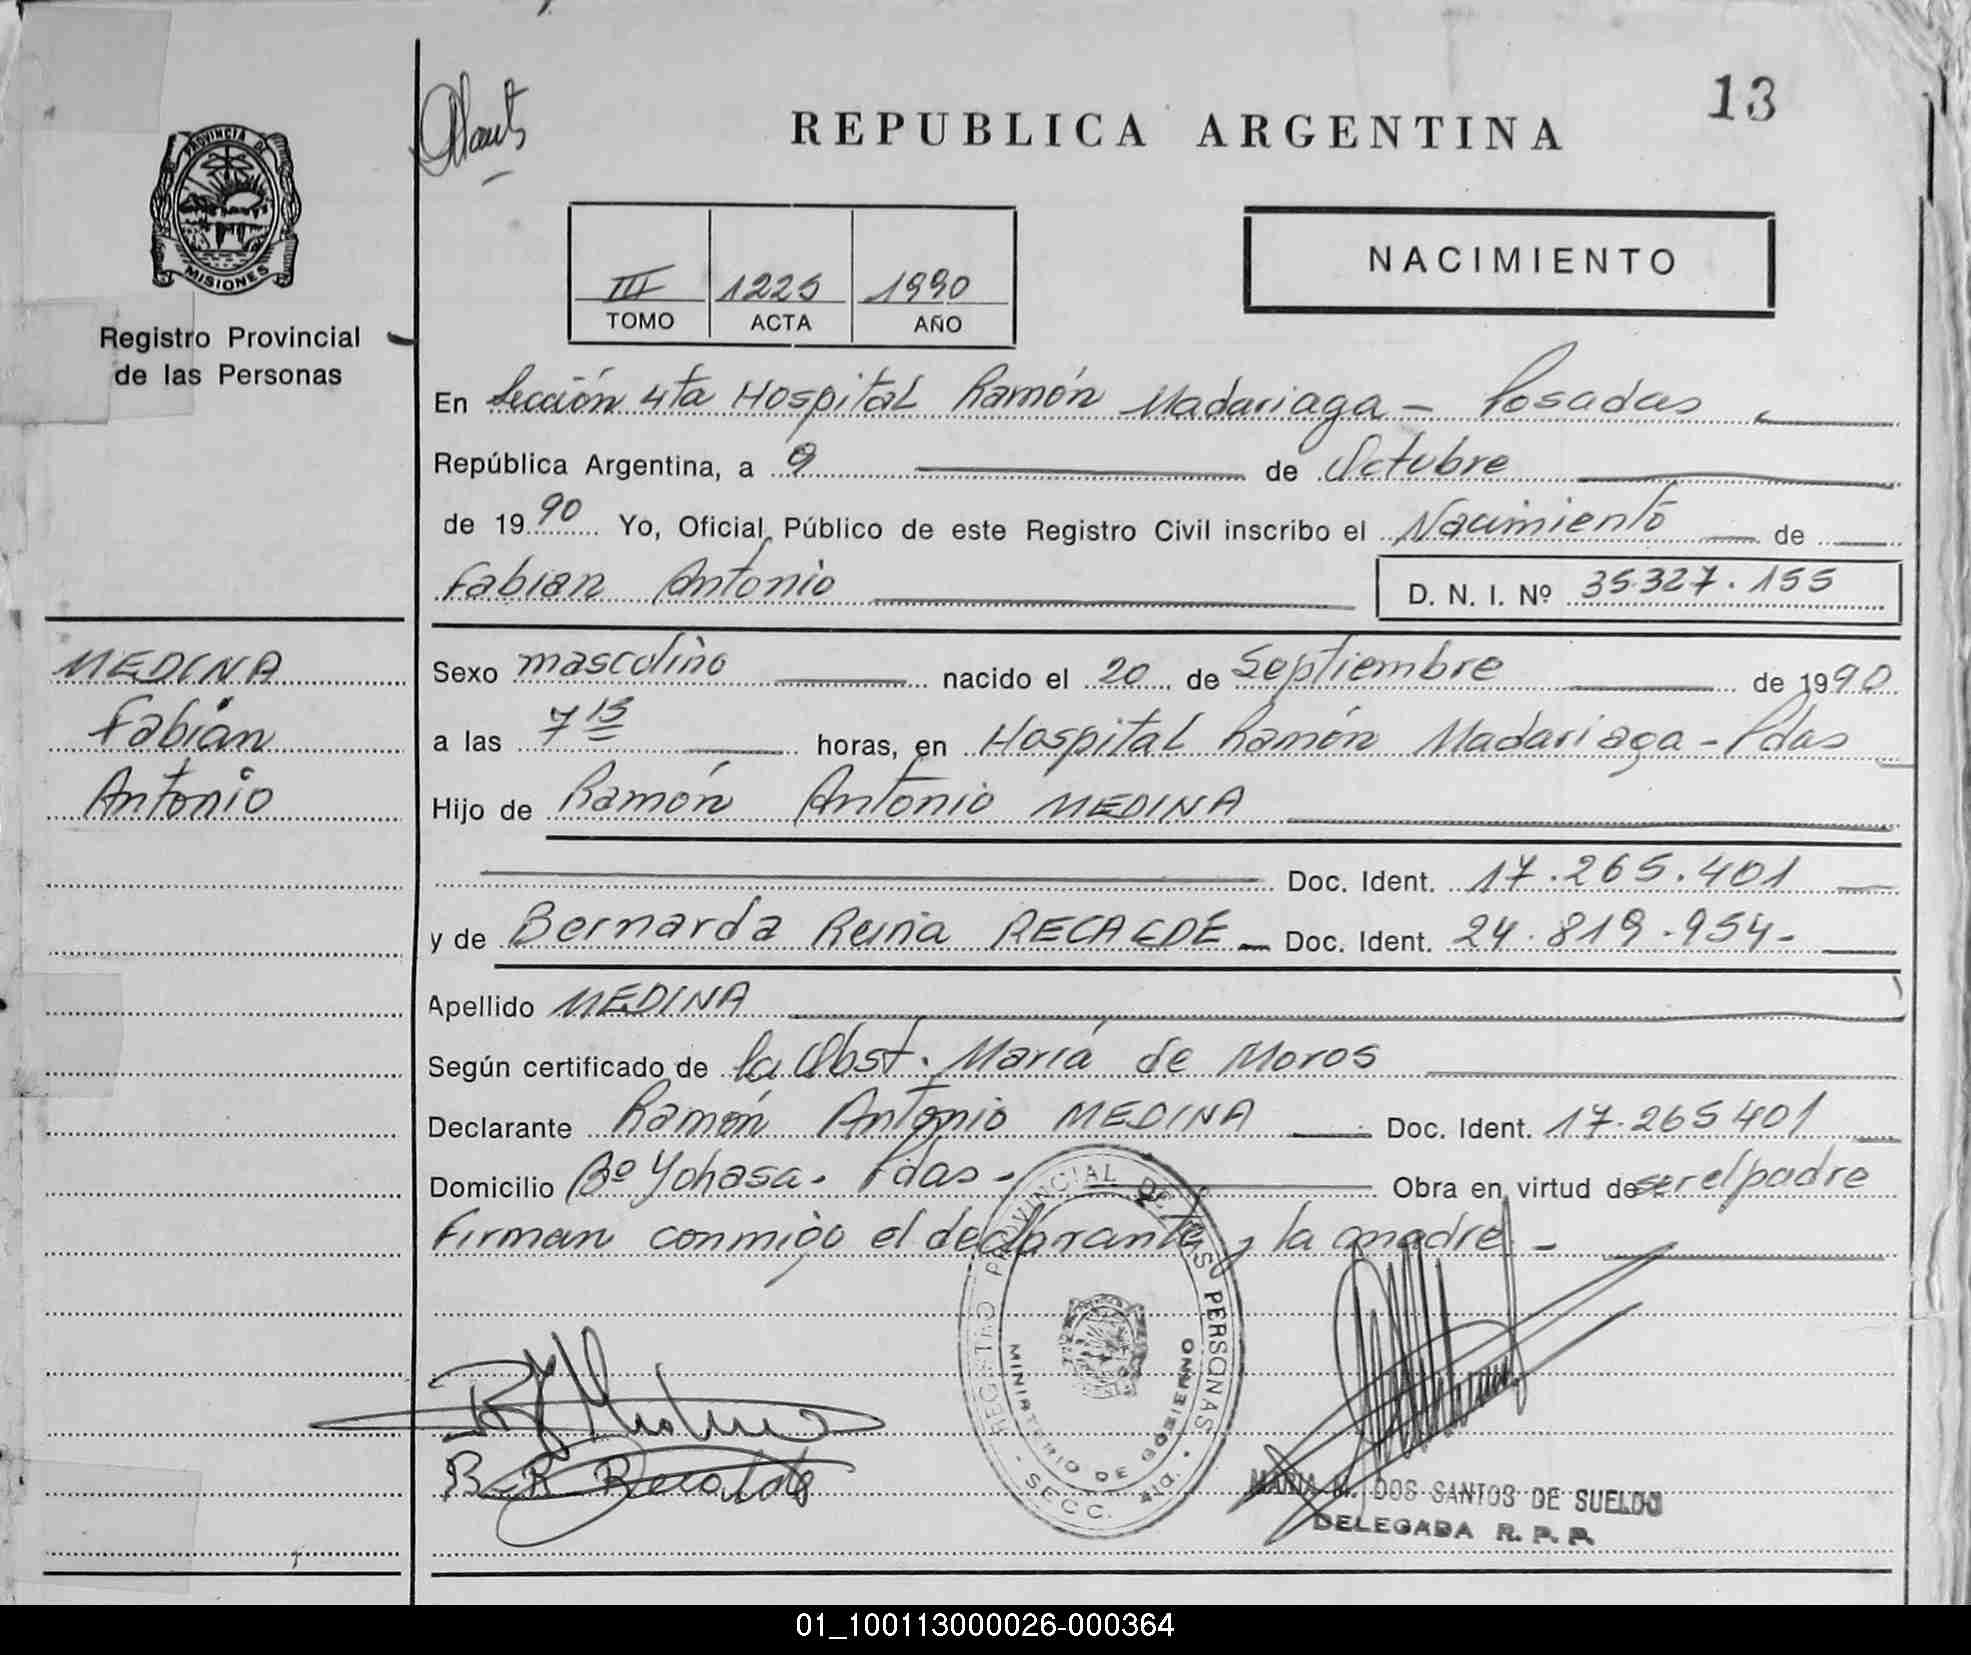 13
REPUBLICA ARGENTINA
PROVINCIA DE
MISIONES
Registro Provincial
de las Personas
NACIMIENTO
III 1225 1990
TOMO ACTA AÑO
En Sección 4ta Hospital Ramón Madariaga - Posadas
República Argentina, a 9 de Octubre
de 1990 Yo, Oficial Público de este Registro Civil inscribo el Nacimiento de
Fabian Antonio D. N. I. Nº 35.327.155
MEDINA
Fabián
Antonio
Sexo masculino nacido el 20 de Septiembre de 1990
a las 7 15 horas, en Hospital Ramón Madariaga - Pdas
Hijo de Ramón Antonio MEDINA
Doc. Ident. 17.265.401
y de Bernarda Reina RECALDE - Doc. Ident. 24.819.954-
Apellido MEDINA
Según certificado de la Obst. María de Moros
Declarante Ramón Antonio MEDINA Doc. Ident. 17.265401
Domicilio Bº Yohasa. Pdas - Obra en virtud de ser el padre
Firman conmigo el declarante y la madre. -
REGISTRO PROVINCIAL DE LAS PERSONAS
MINISTERIO DE GOBIERNO
- SECC. 4ta. -
B R Recalde
MARIA M. DOS SANTOS DE SUELDO
DELEGADA R. P. P.
01_100113000026-000364